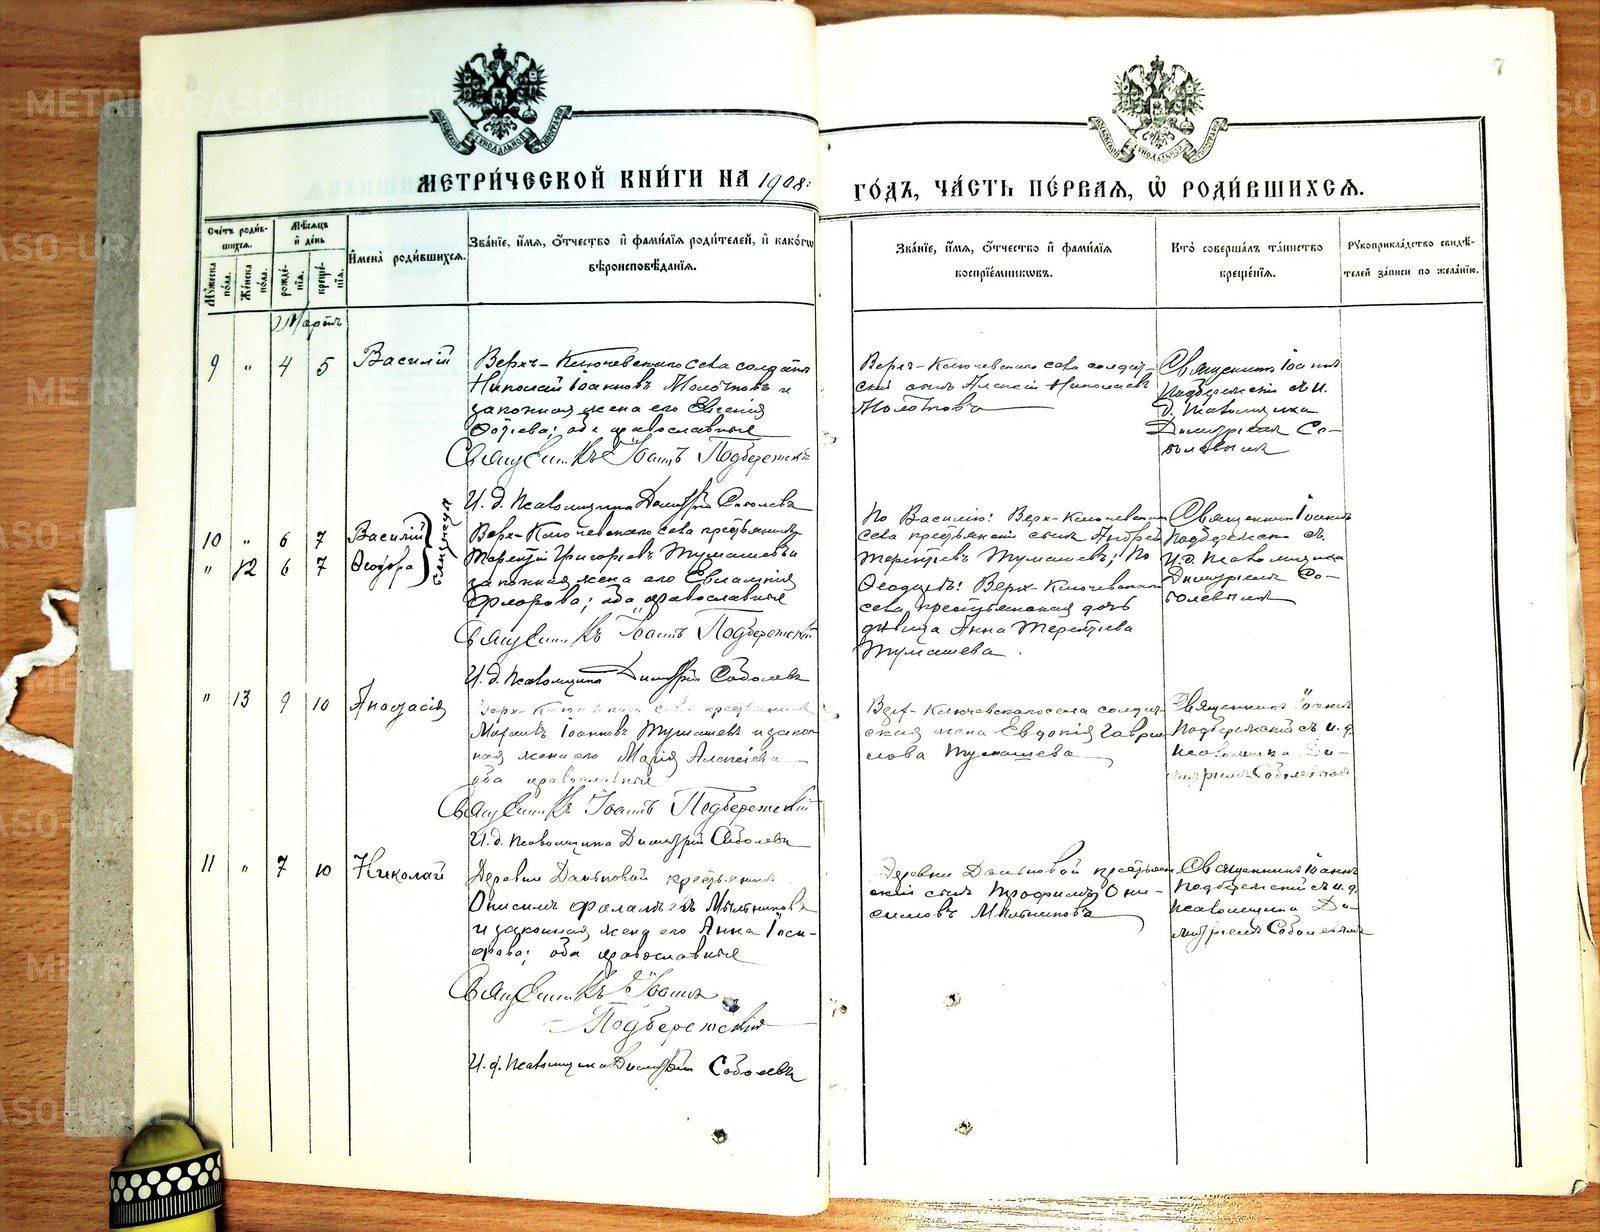 7
МЕТРИ́ЧЕСКОЙ КНИ́ГИ НА 1908:
ГО́ДЪ, ЧА́СТЬ ПЕ́РВАЯ, Ѽ РОДИ́ВШИХСЯ.
Сче́тъ роди́в-
шихся.
Мꙋжеска по́ла.
Же́нска по́ла.
Мѣ́сяцъ и де́нь
рожде́-
нїя.
креще́-
нїя.
Имена̀ роди́вшихся.
Зва́нїе, и́мя, о́тчество и фами́лїя роди́телей, и како́гѡ
вѣроисповѣ́данїя.
Зва́нїе, и́мя, о́тчество и фами́лїя
воспрїе́мникѡвъ.
Кто̀ соверша́лъ та́инство
креще́нїя.
Рꙋкоприкла́дство свидѣ́-
телей за́писи по жела́нїю.
Мартъ
9 " 4 5 Василій
Верхъ-Ключевского села солдатъ
Николай Іоанновъ Молотковъ и
законная жена его Евгенія
оба православные
Священникъ Іоаннъ Подбережскій
И. д. Псаломщика Димитрій Соболевъ
Верхъ-Ключевского села солдат-
скій сынъ Алексій Николаевъ
Молотковъ
Священникъ Іоаннъ
Подбережскій съ и.
д. Псаломщика
Димитріемъ Со-
болевымъ
10 " 6 7 Василій
" 12 6 7 Ѳеодора
близнецы
Верхъ-Ключевского села крестьянинъ
Терентій Григорьевъ Тумашевъ и
законная жена его Евлампія
Флорова; оба православные
Священникъ Іоаннъ Подбережскій
И. д. Псаломщика Димитрій Соболевъ
По Василію: Верх-Ключевского
села крестьянскій сынъ Андрей
Терентьевъ Тумашевъ; По
Ѳеодоръ: Верхъ-Ключевского
села крестьянская дочь
дѣвица Анна Терентьева
Тумашева.
Священникъ Іоаннъ
Подбережскій съ
И. д. Псаломщика
Димитріемъ Со-
болевымъ
" 13 9 10 Анастасія
Верх-Ключевского села крестьянинъ
Іоанновъ Тумашевъ и закон-
ная жена его Марія Алексіева
оба православные
Священникъ Іоаннъ Подбережскій
И. д. Псаломщика Димитрій Соболевъ
Верх-Ключевского села солдат-
ская жена Евдокія Гаври-
лова Тумашева
Священникъ Іоаннъ
Подбережскій съ и. д.
Псаломщика Ди-
митріемъ Соболевымъ
11 " 7 10 Николай
Деревни крестьянинъ
Онисимъ Мыльниковъ
и законная жена его Анна Іоси-
фова; оба православные
Священникъ Іоаннъ
Подбережскій
И. д. Псаломщика Димитрій Соболевъ
Деревни крестьян-
скій сынъ Трофимъ Они-
симовъ Мыльниковъ
Священникъ Іоаннъ
Подбережскій съ и. д.
Псаломщика Ди-
митріемъ Соболевымъ